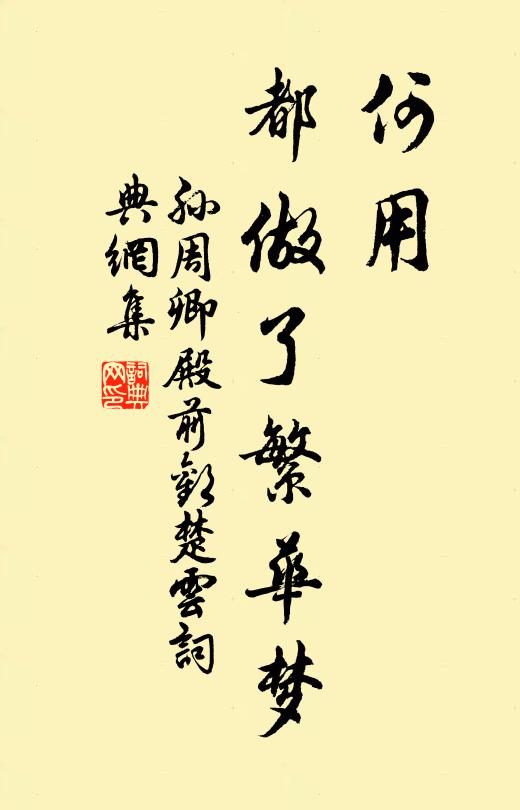 何用
都做了繁華梦
孙周卿殿前歡楚雲詞
典網集
詞典
网印